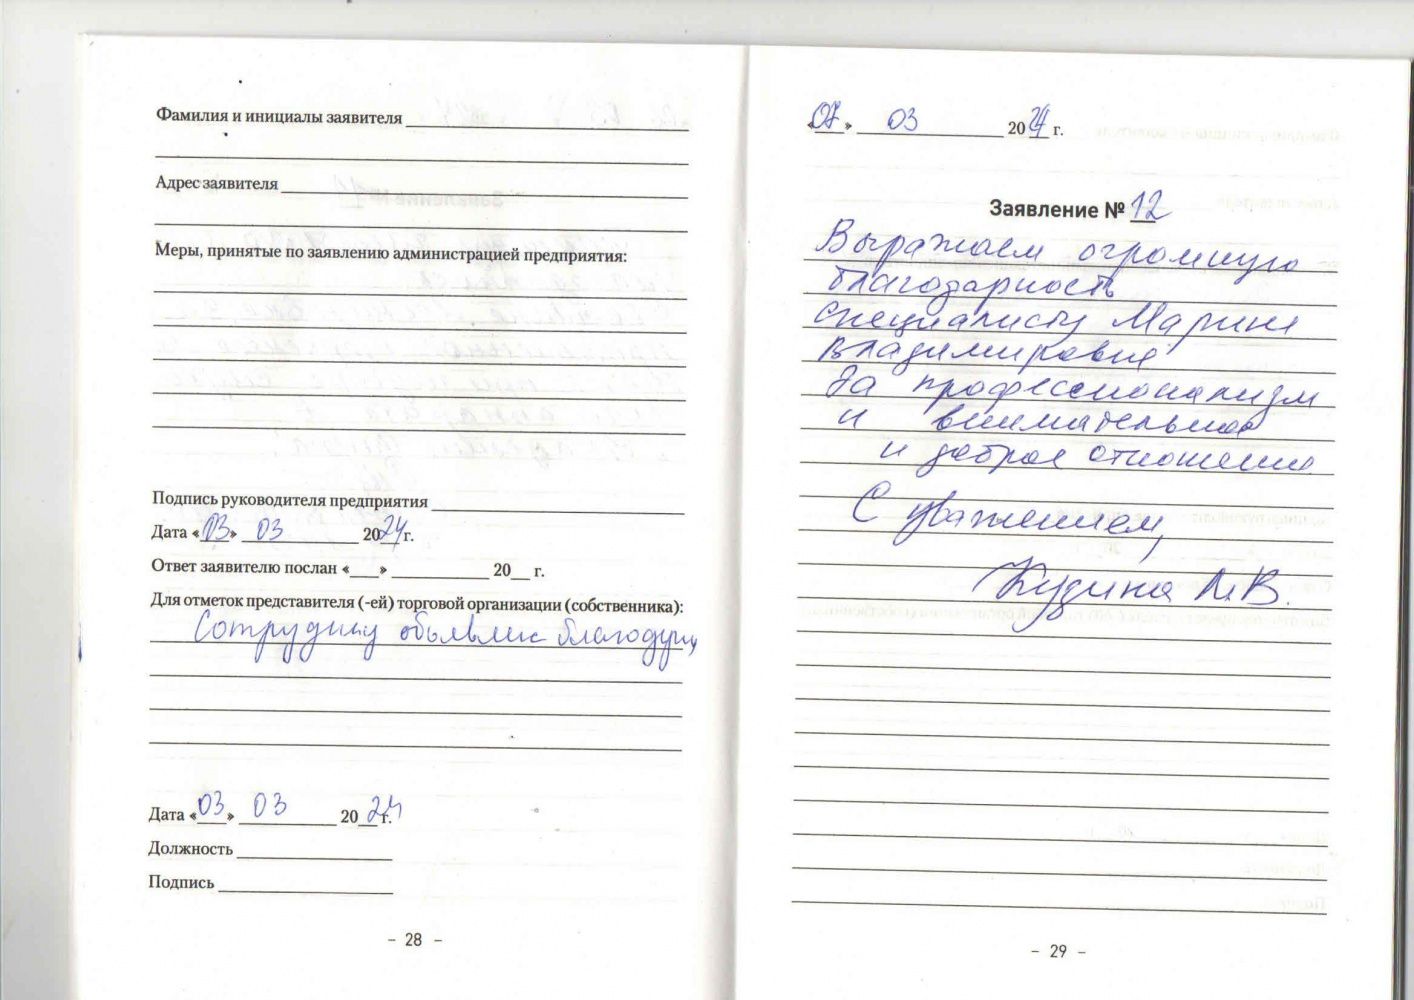 Фамилия и инициалы заявителя
Адрес заявителя
Меры, принятые по заявлению администрацией предприятия:
Подпись руководителя предприятия
Дата «03» 03 2024 г.
Ответ заявителю послан «___» ____________ 20__ г.
Для отметок представителя (-ей) торговой организации (собственника):
Сотруднику
Дата «03» 03 2024 г.
Должность
Подпись
- 28 -
«07» 03 2024 г.
Заявление № 12
Выражаем огромную
благодарность
специалисту Марине
Владимировне
За профессионализм
и внимательное
и доброе отношение
С уважением,
Кудина Л.В.
- 29 -